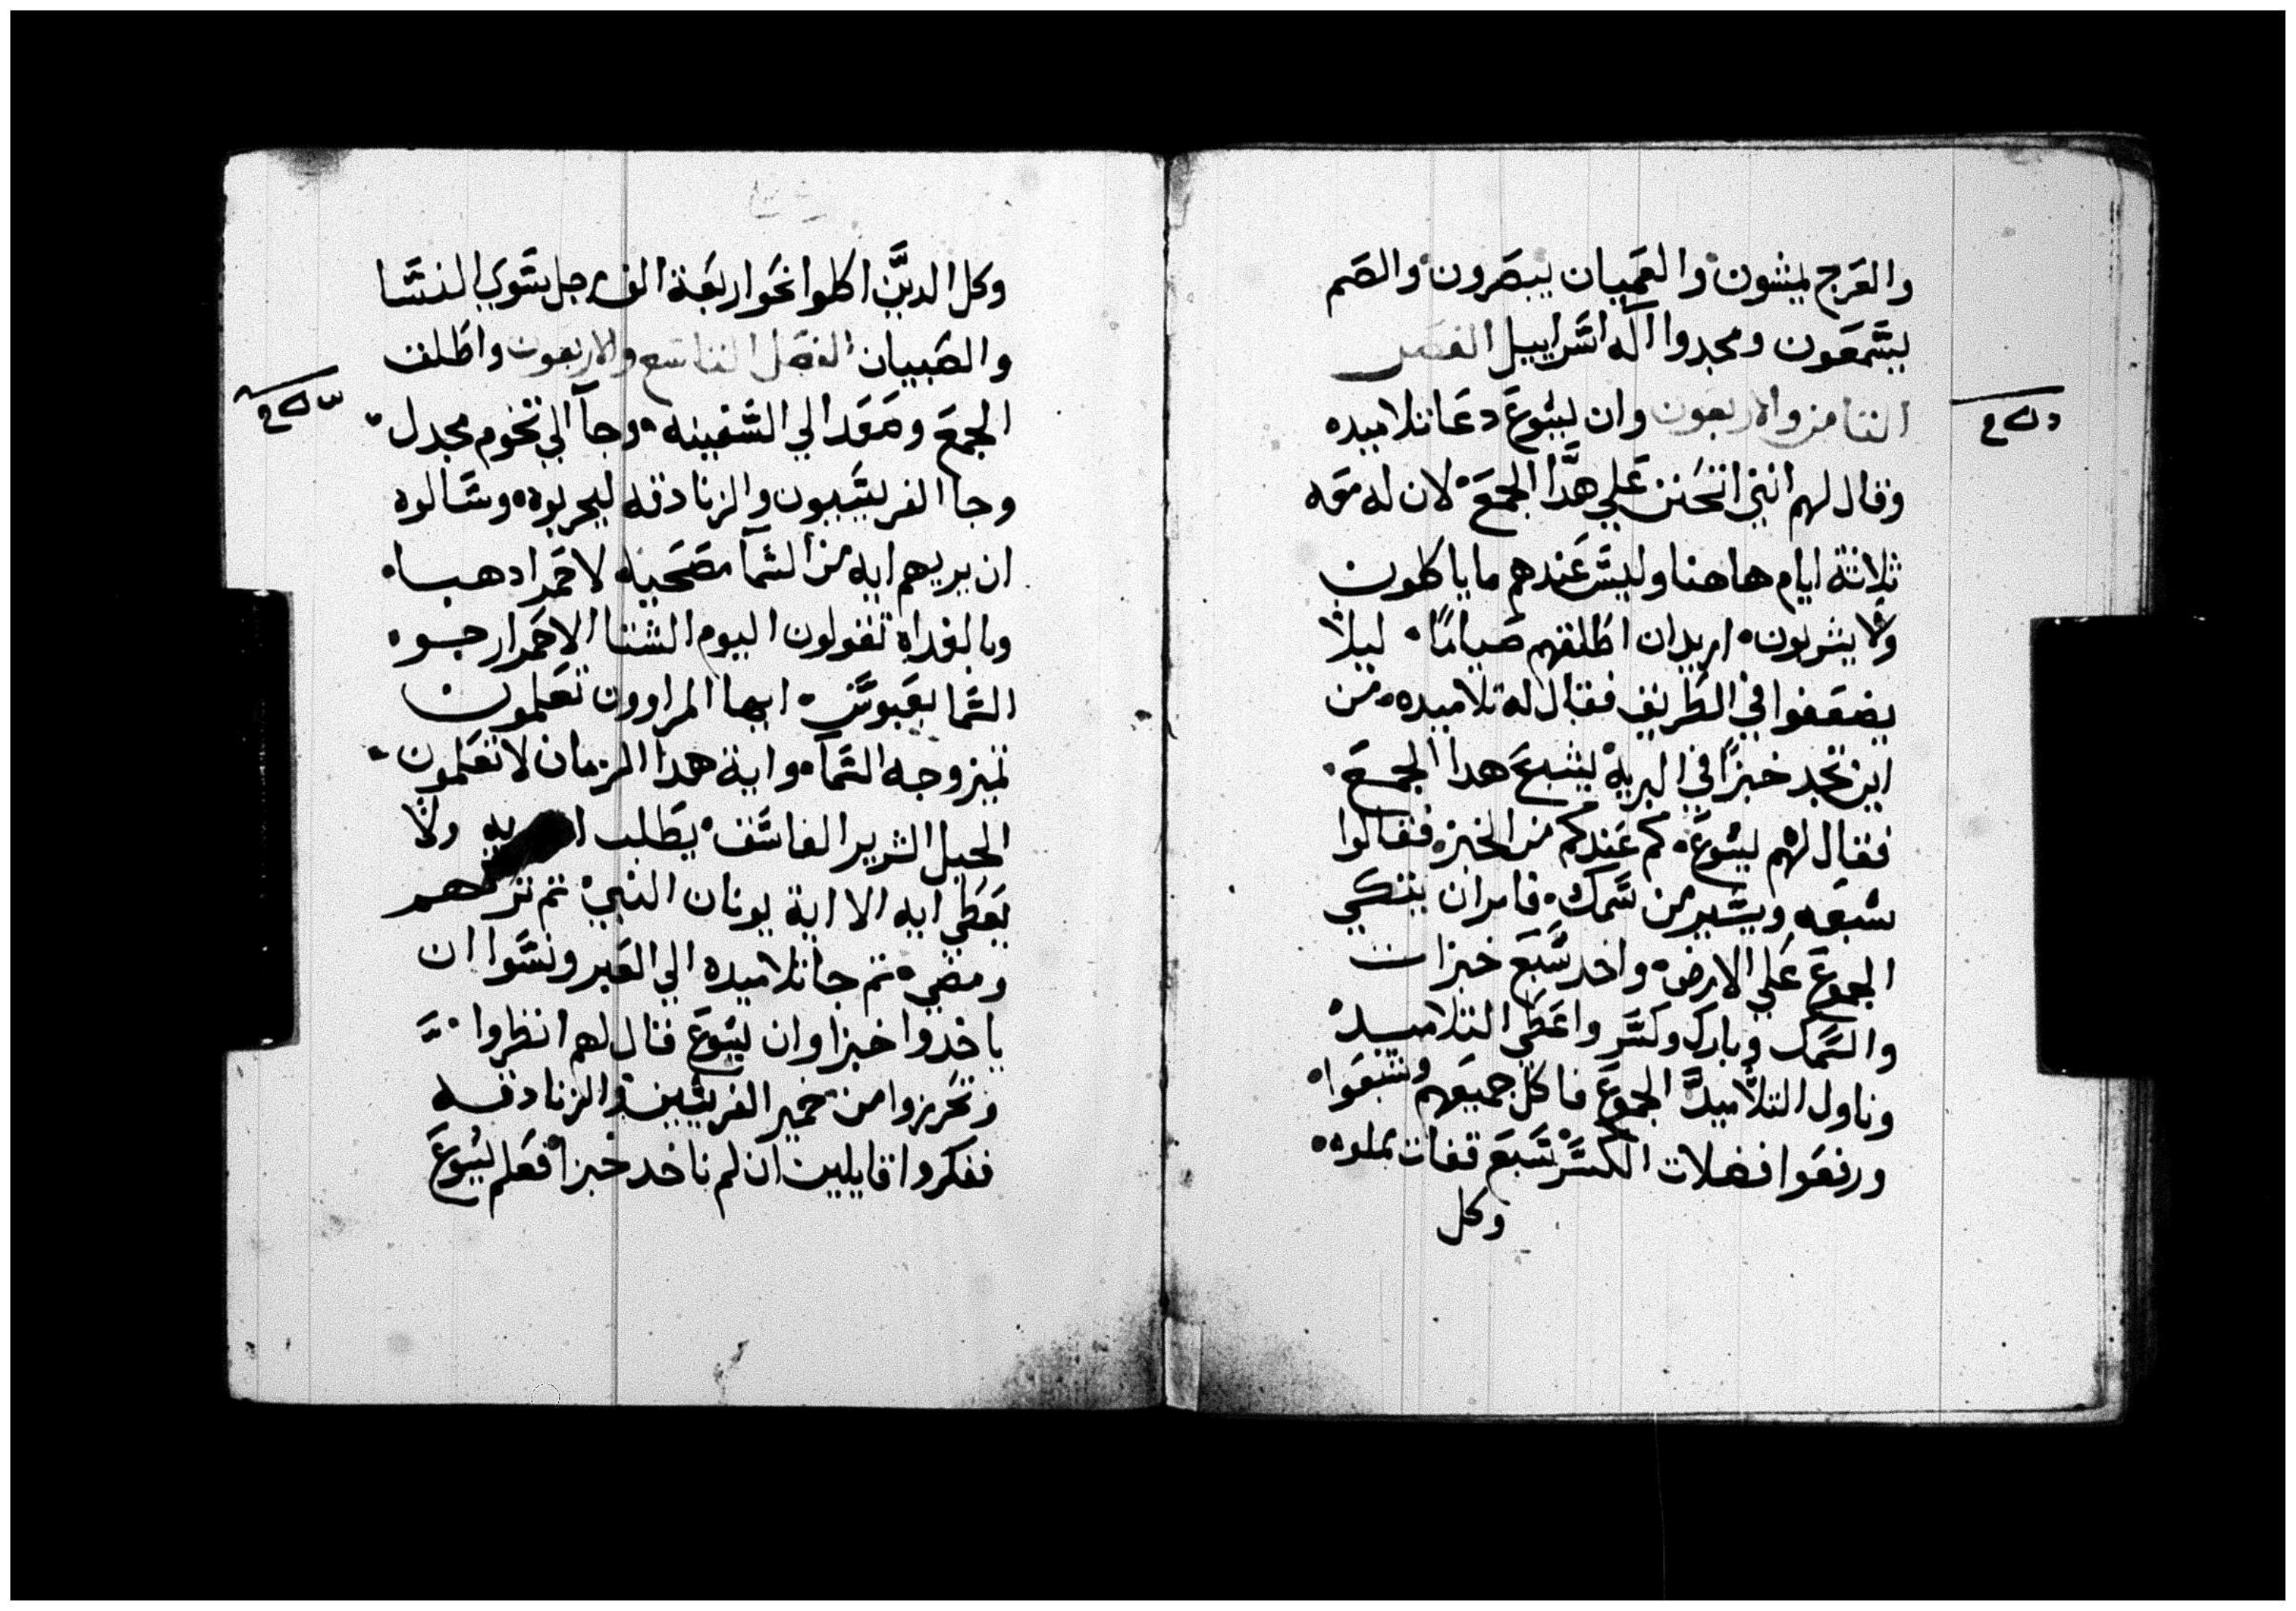 والعرج يمشون والعميان يبصرون والصم
يسمعون ومجدوا اله اسراييل الفصل
الثامن والاربعون وان يسوع دعا تلاميده
وقال لهم انني اتحنن علي هدا الجمع لان له معه
ثلاثة ايام هاهنا وليس عندهم ما ياكلون
ولا يشربون اريد ان اطلقهم صياما ليلا
يضعفوا في الطريق فقال له تلاميده من
اين نجد خبزا في البرية يشبع هدا الجمع
فقال لهم يسوع كم عندكم من الخبز فقالوا
سبعه ويسير من سمك فامر ان يتكي
الجموع علي الارض واخد سبع خبزات
والسمك وبارك وكسر واعطي التلاميد
وناول التلاميد الجموع فاكل جميعهم وشبعوا
ورفعوا فضلات الكسر سبع قفات مملوه
وكل
وكل الدين اكلوا نحو اربعة الف رجل سوي النسا
والصبيان الفصل التاسع والاربعون واطلق
الجمع وصعد الي السفينه وجا الي تخوم مجدل
وجا الفريسيون والزنادقه ليجربوه وسالوه
ان يريهم ايه من السما مصحيه لاحمرادها
وبالغداه تقولون اليوم الشتا الاحمرار جو
السما بعبوس ايها المراوون تعلمون
تميز وجه السما واية هدا الزمان لا تعلمون
الجيل الشرير الفاسق يطلب ايه ولا
يعطي ايه الا اية يونان النبي تم تركهم
ومضي تم جا تلاميده الي العبر ونسوا ان
ياخدوا خبزا وان يسوع قال لهم انظروا
وتحرزوا من خمير الفريسيين والزنادقه
ففكروا قايلين ان لم ناخد خبزا فعلم يسوع